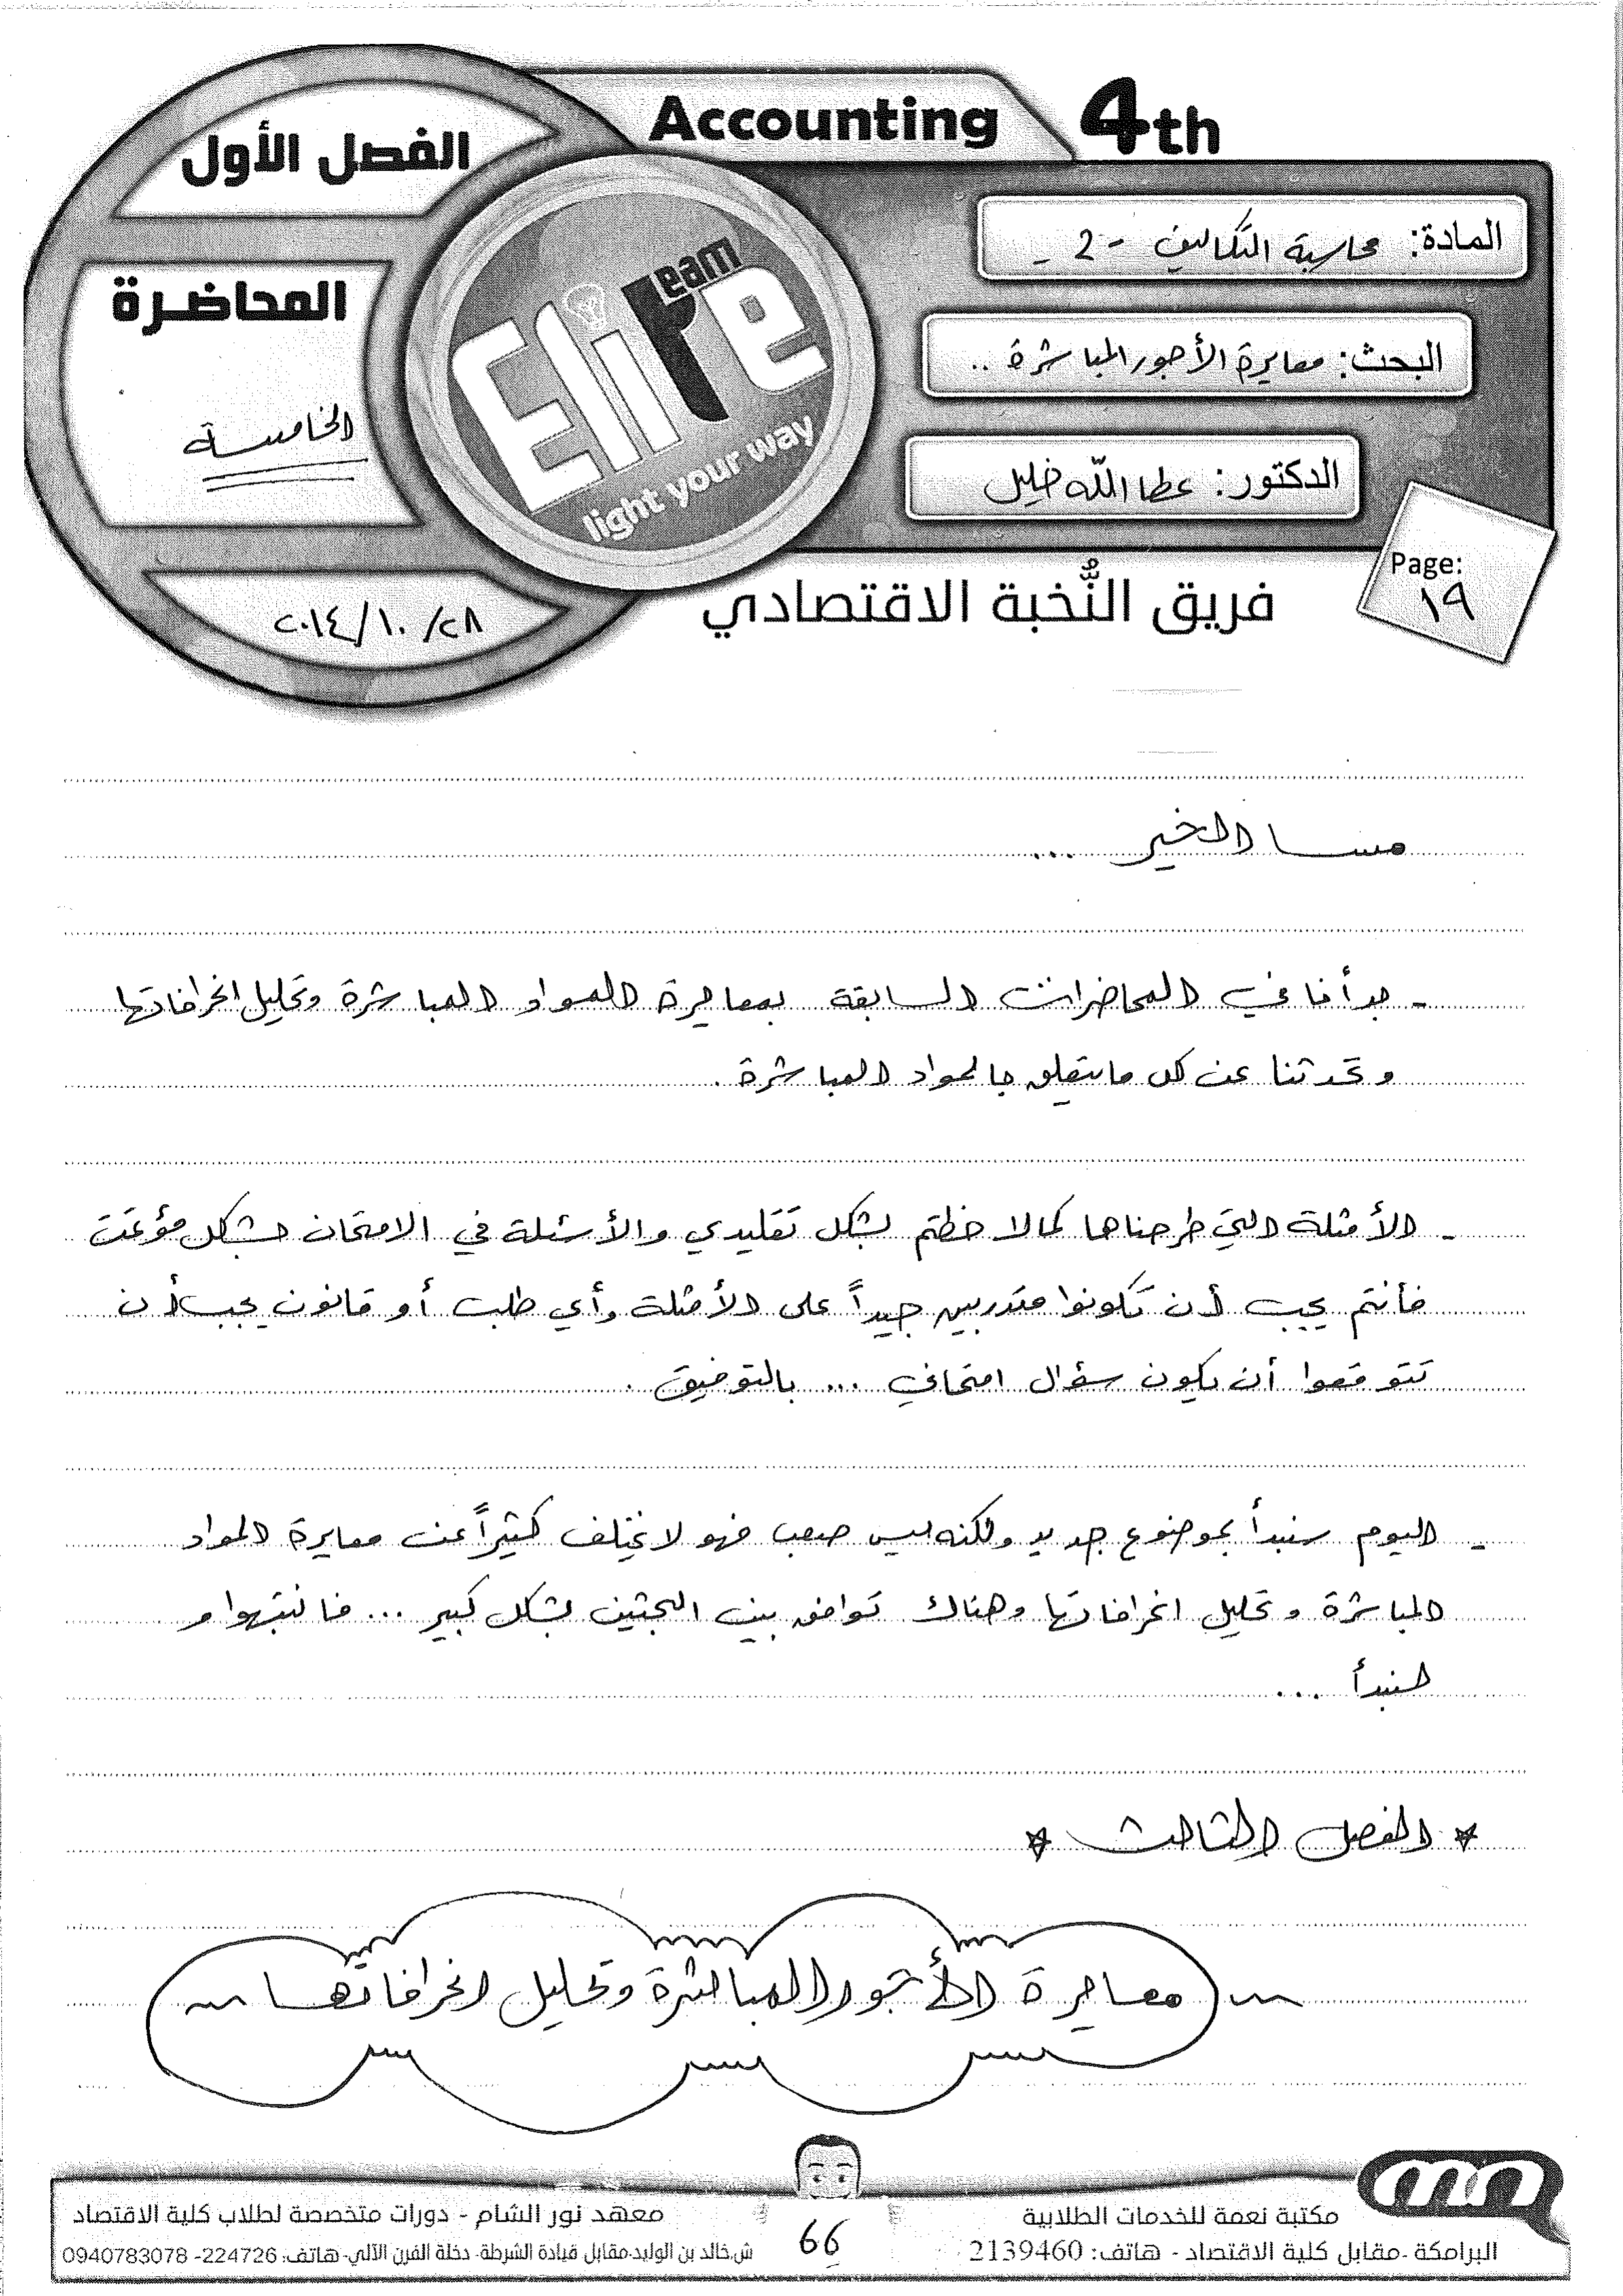 Accounting 4th
الفصل الأول
المادة: محاسبة التكاليف - 2 -
المحاضرة
الخامسة
البحث: معايرة الأجور المباشرة ..
الدكتور: عطا الله خليل
Elite Team
light your way
Page: ١٩
٢٠١٤/١٠/٢٨
فريق النُّخبة الاقتصادي
مسا الخير ...
- بدأنا في المحاضرات السابقة بمعايرة المواد المباشرة وتحليل انحرافاتها
وتحدثنا عن كل ما يتعلق بالمواد المباشرة .
- الأمثلة التي طرحناها كما لاحظتم بشكل تقليدي والأسئلة في الامتحان بشكل مؤتمت
فأنتم يجب أن تكونوا متدربين جيداً على الأمثلة وأي طلب أو قانون يجب أن
تتوقعوا أن يكون سؤال امتحاني ... بالتوفيق .
- اليوم سنبدأ بموضوع جديد ولكنه ليس صعب فهو لا يختلف كثيراً عن معايرة المواد
المباشرة وتحليل انحرافاتها وهناك توافق بين البحثين بشكل كبير ... فانتبهوا و
لنبدأ ...
* الفصل الثالث *
معايرة الأجور المباشرة وتحليل انحرافاتها
مكتبة نعمة للخدمات الطلابية
البرامكة -مقابل كلية الاقتصاد - هاتف: 2139460
66
معهد نور الشام - دورات متخصصة لطلاب كلية الاقتصاد
ش.خالد بن الوليد-مقابل قيادة الشرطة- دخلة الفرن الآلي- هاتف: 224726- 0940783078